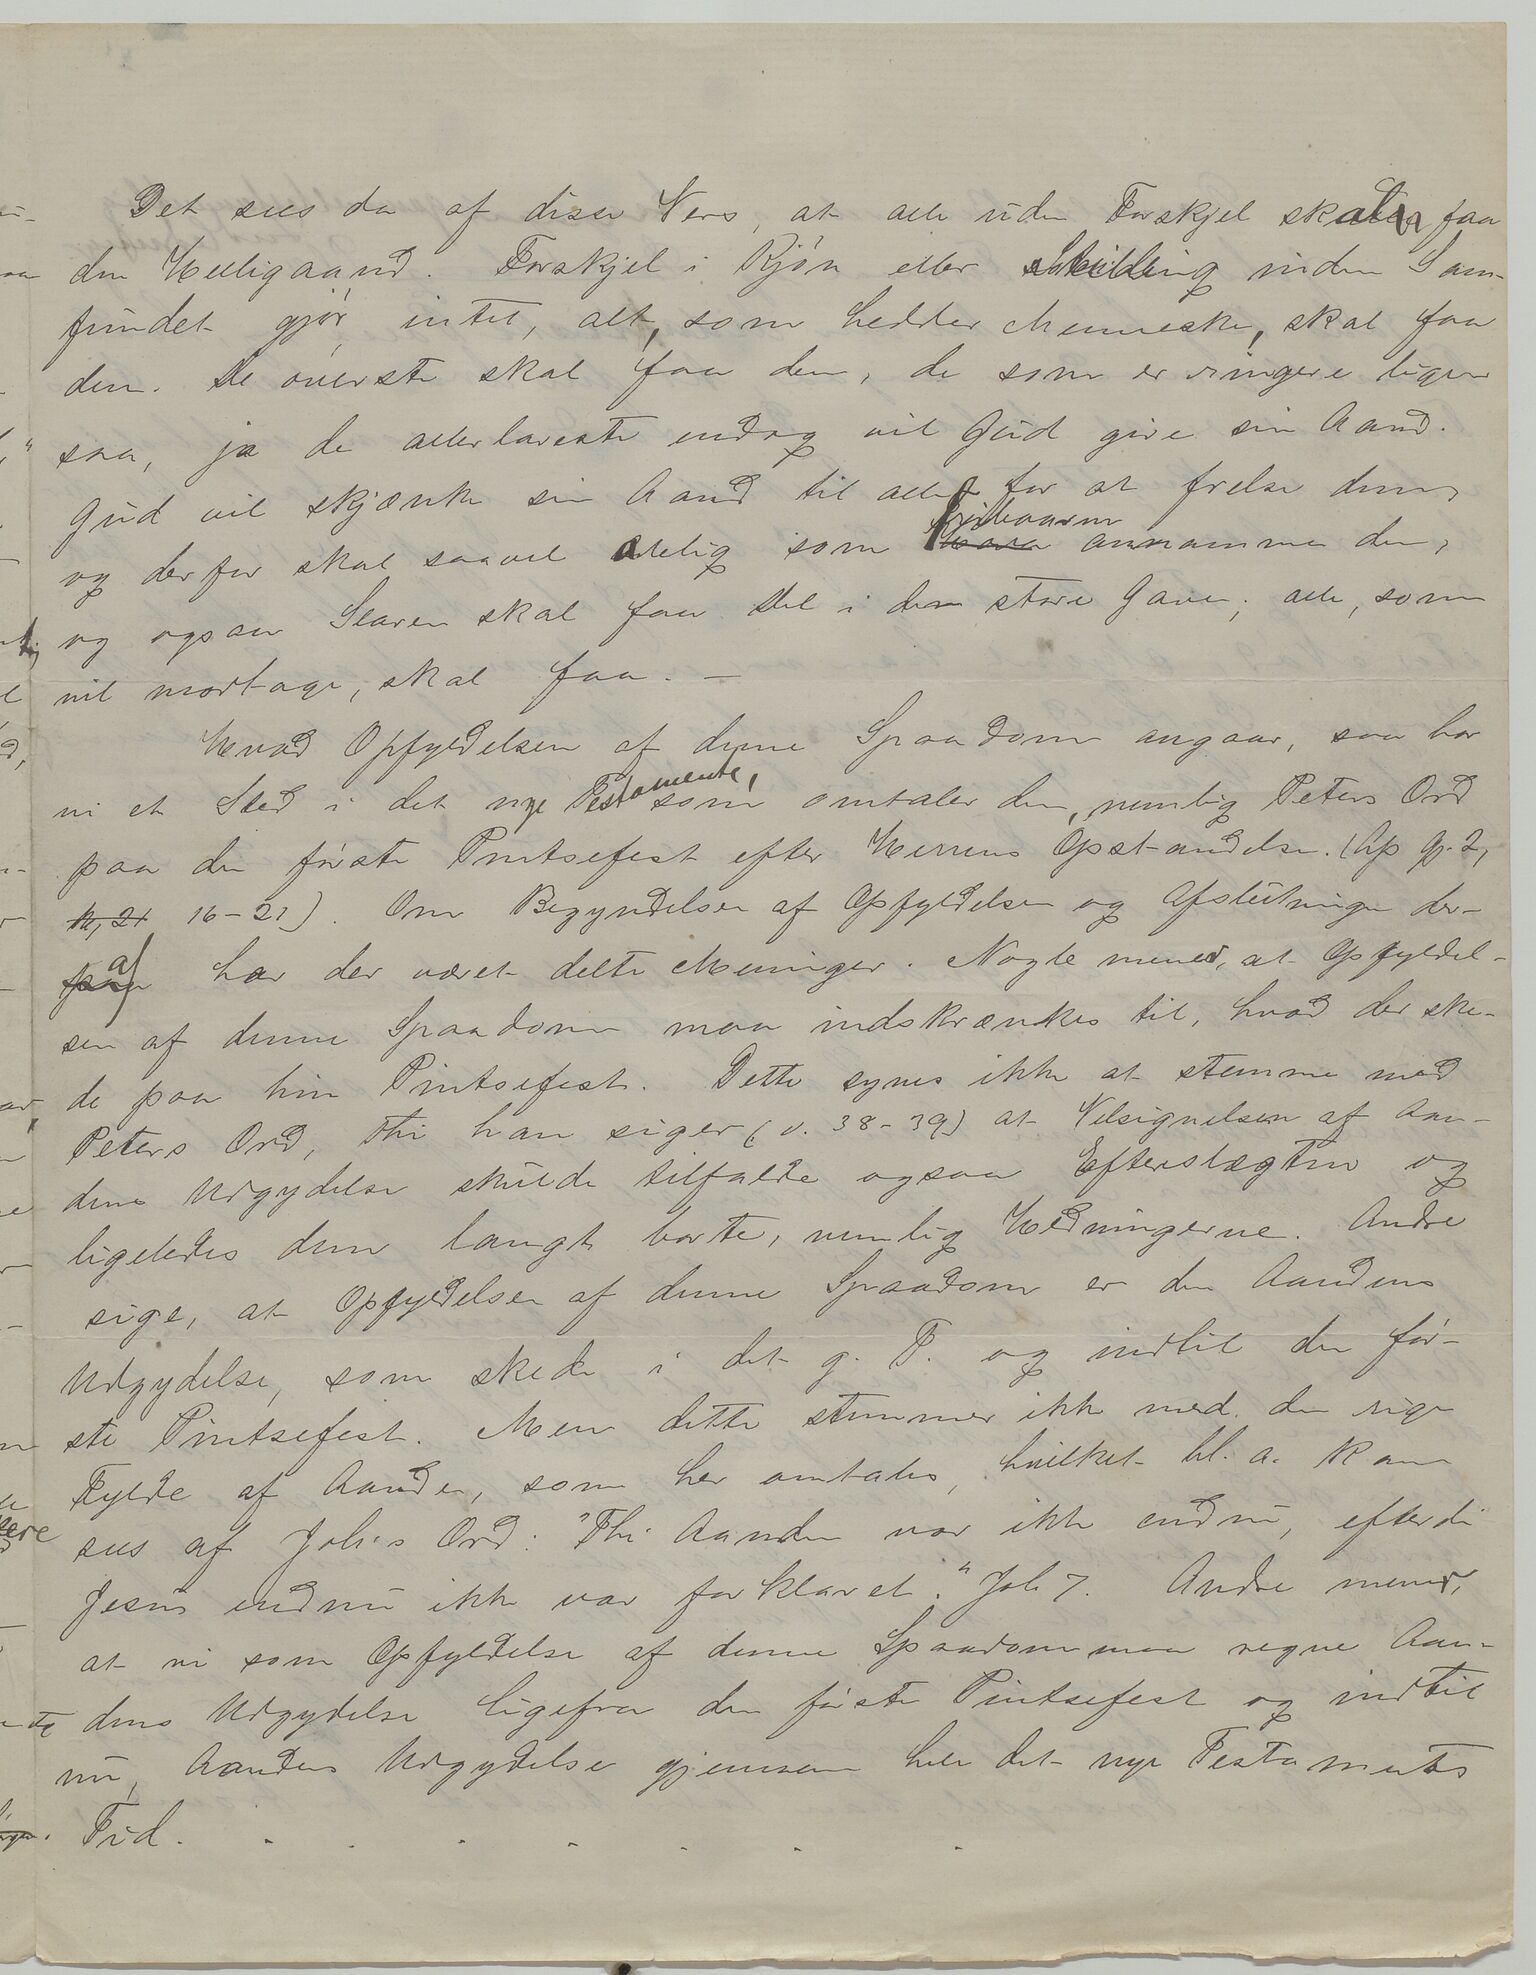 Det sees da af disse Vers, at alle uden Forskjel skal faa
den Helligaand. Forskjel i Kjøn eller Stilling inden Sam-
fundet gjør intet, alt, som hedder Menneske, skal faa
den. De øverste skal faa den, de som er ringere ligesaa
saa, ja de allerlaveste endog vil Gud give sin Aand.
Gud vil skjænke sin Aand til alle for at frelse dem,
og derfor skal saavel adelig som fribaaren annamme den,
og ogsaa Slaven skal faa Del i den store Gave; alle, som
vil modtage, skal faa. —
Hvad Opfyldelsen af denne Spaadom angaar, saa har
vi et Sted i det nye Testamente, som omtaler den, nemlig Peters Ord
paa den første Pintsefest efter Herrens Opstandelse. (Ap. Gj. 2,
16-21). Om Begyndelsen af Opfyldelsen og Afslutningen der-
af har der været delte Meninger. Nogle mener, at Opfyldel-
sen af denne Spaadom maa indskrænkes til, hvad der ske-
de paa hin Pintsefest. Dette synes ikke at stemme med
Peters Ord, thi han siger (v. 38-39) at Velsignelsen af Aan-
dens Udgydelse skulde tilfalde ogsaa Efterslægten og
ligeledes dem langt borte, nemlig Hedningerne. Andre
sige, at Opfyldelsen af denne Spaadom er den Aandens
Udgydelse, som skede i det g. T. og indtil den før-
ste Pintsefest. Men dette stemmer ikke med den rige
Fylde af Aanden, som her omtales, hvilket bl. a. kan
sees af Joh's Ord: "Thi Aanden var ikke endnu, efterdi
Jesus endnu ikke var forklaret." Joh 7. Andre mener,
at vi som Opfyldelse af denne Spaadom maa regne Aan-
dens Udgydelse ligefra den første Pintsefest og indtil
nu, Aandens Udgydelse gjennem hele det nye Testamentes
Tid.